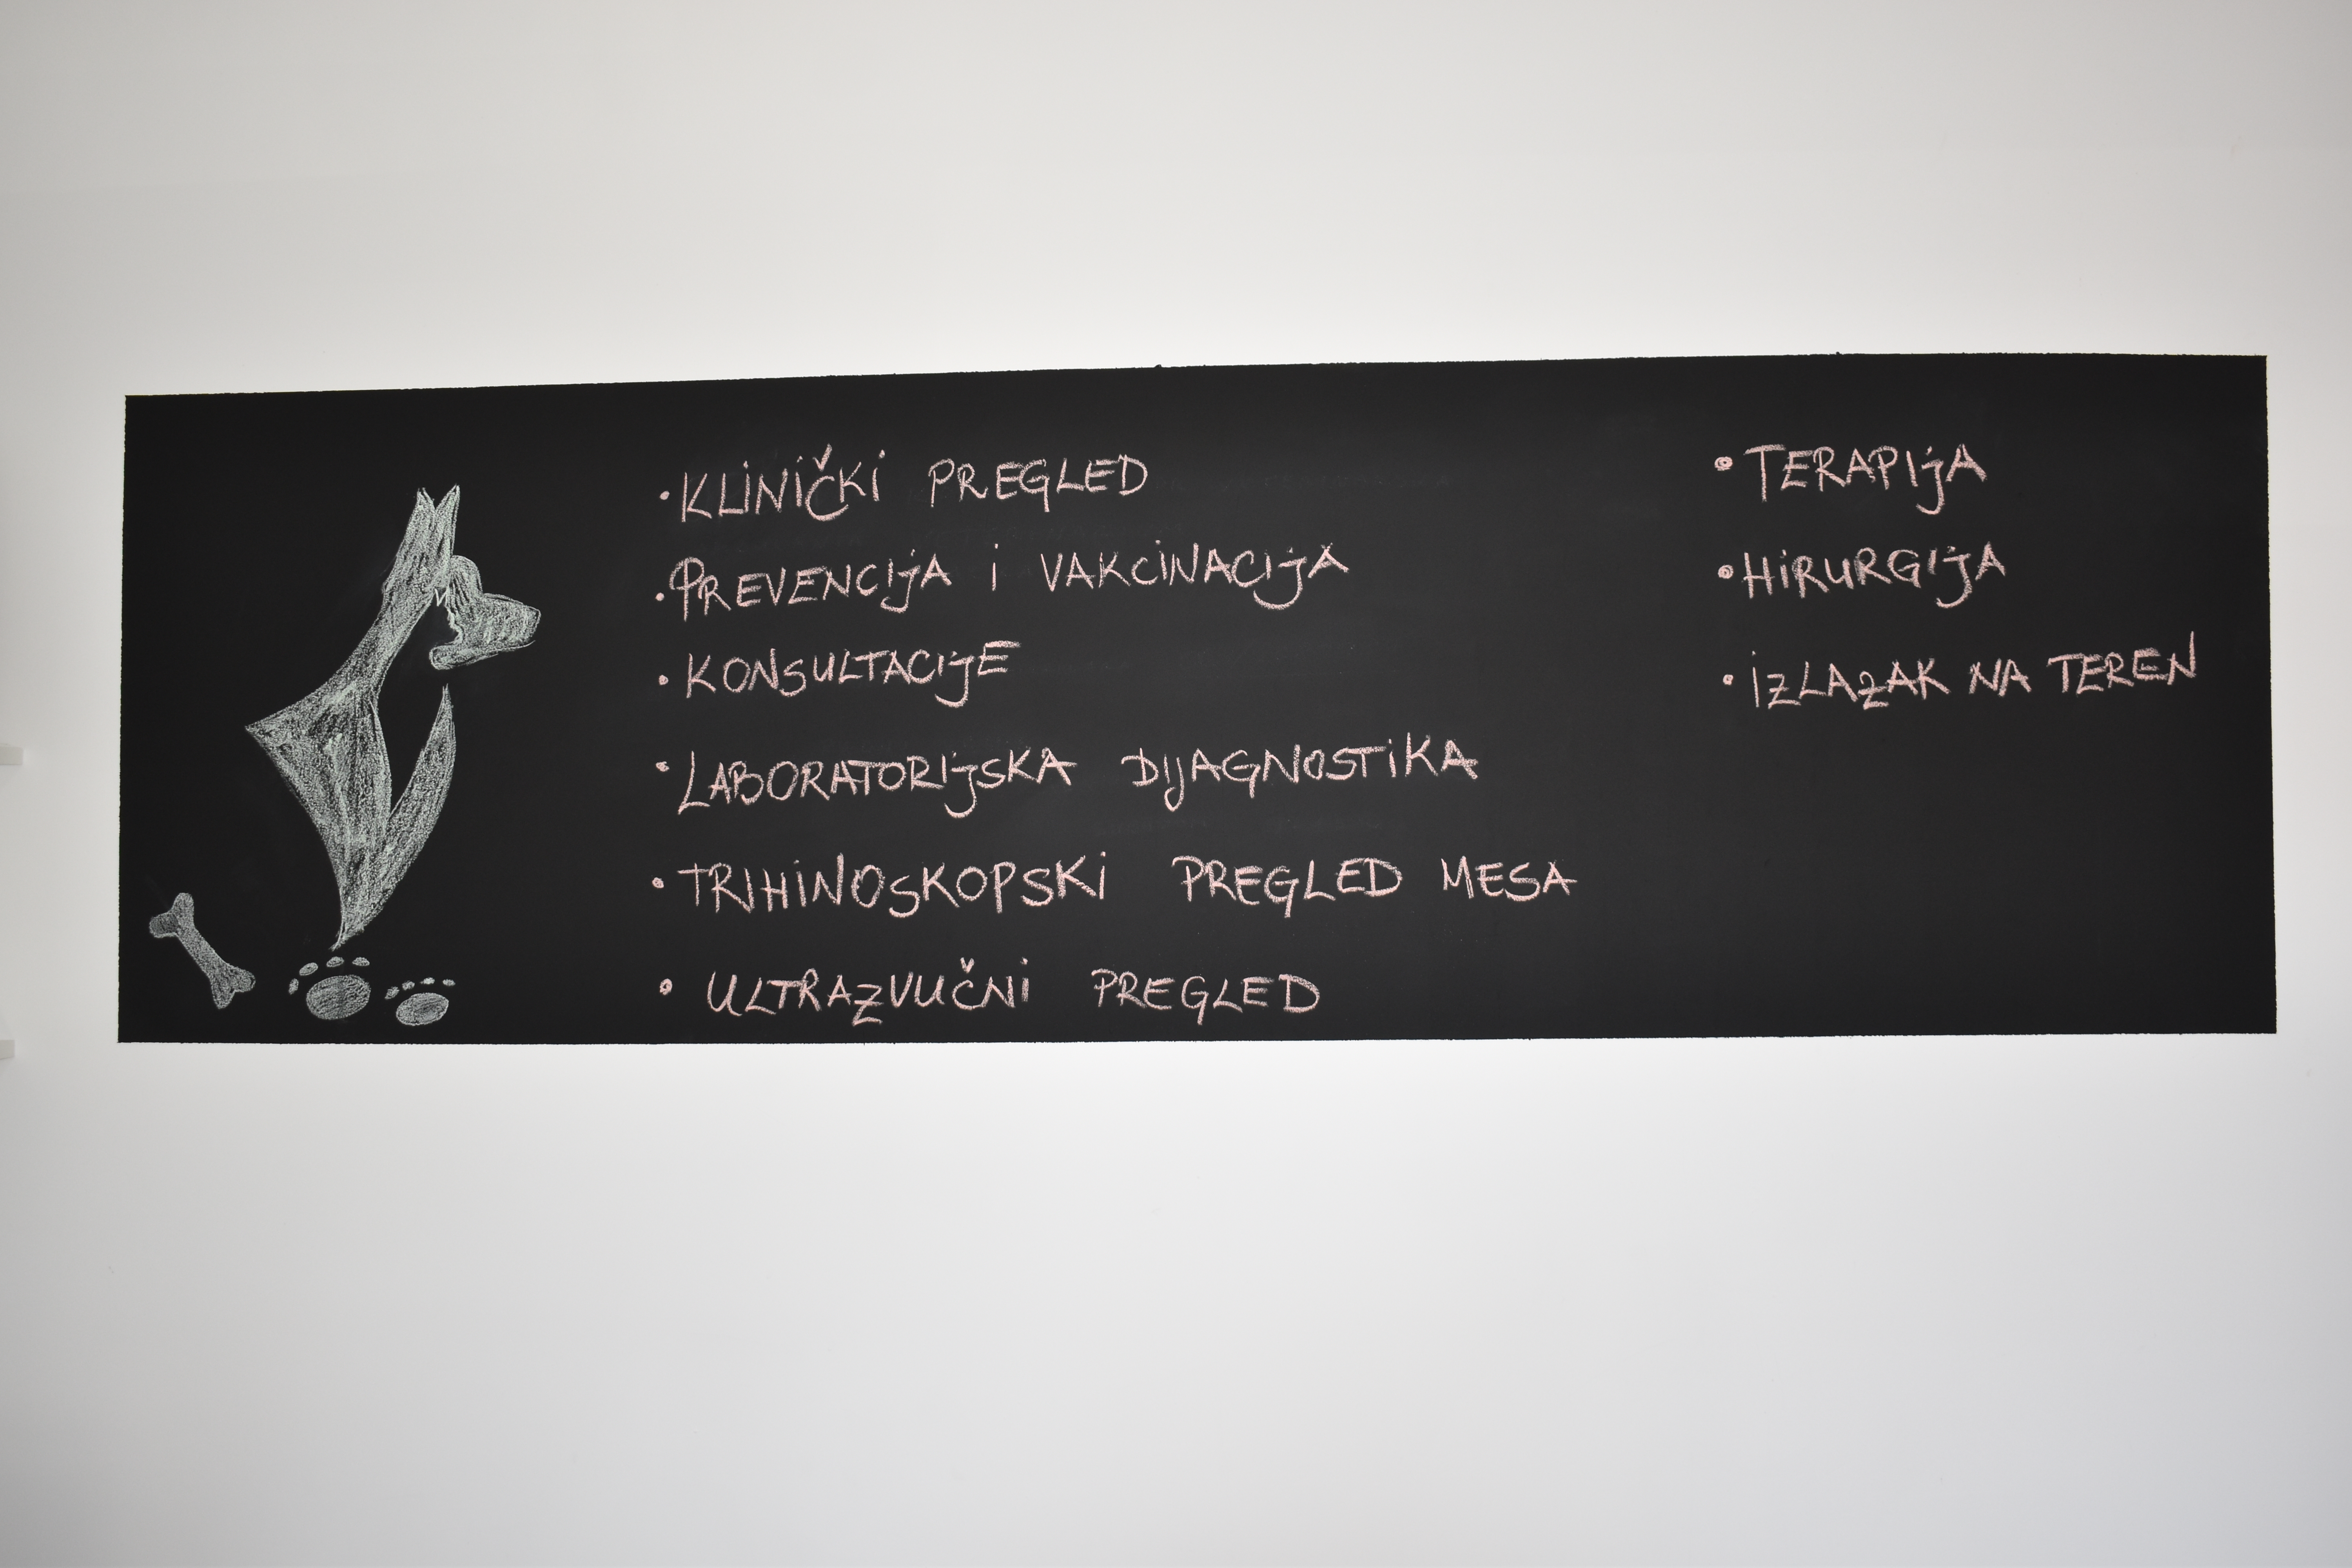 • KLINIČKI PREGLED
• PREVENCIJA I VAKCINACIJA
• KONSULTACIJE
• LABORATORIJSKA DIJAGNOSTIKA
• TRIHINOSKOPSKI PREGLED MESA
• ULTRAZVUČNI PREGLED
• TERAPIJA
• HIRURGIJA
• IZLAZAK NA TEREN